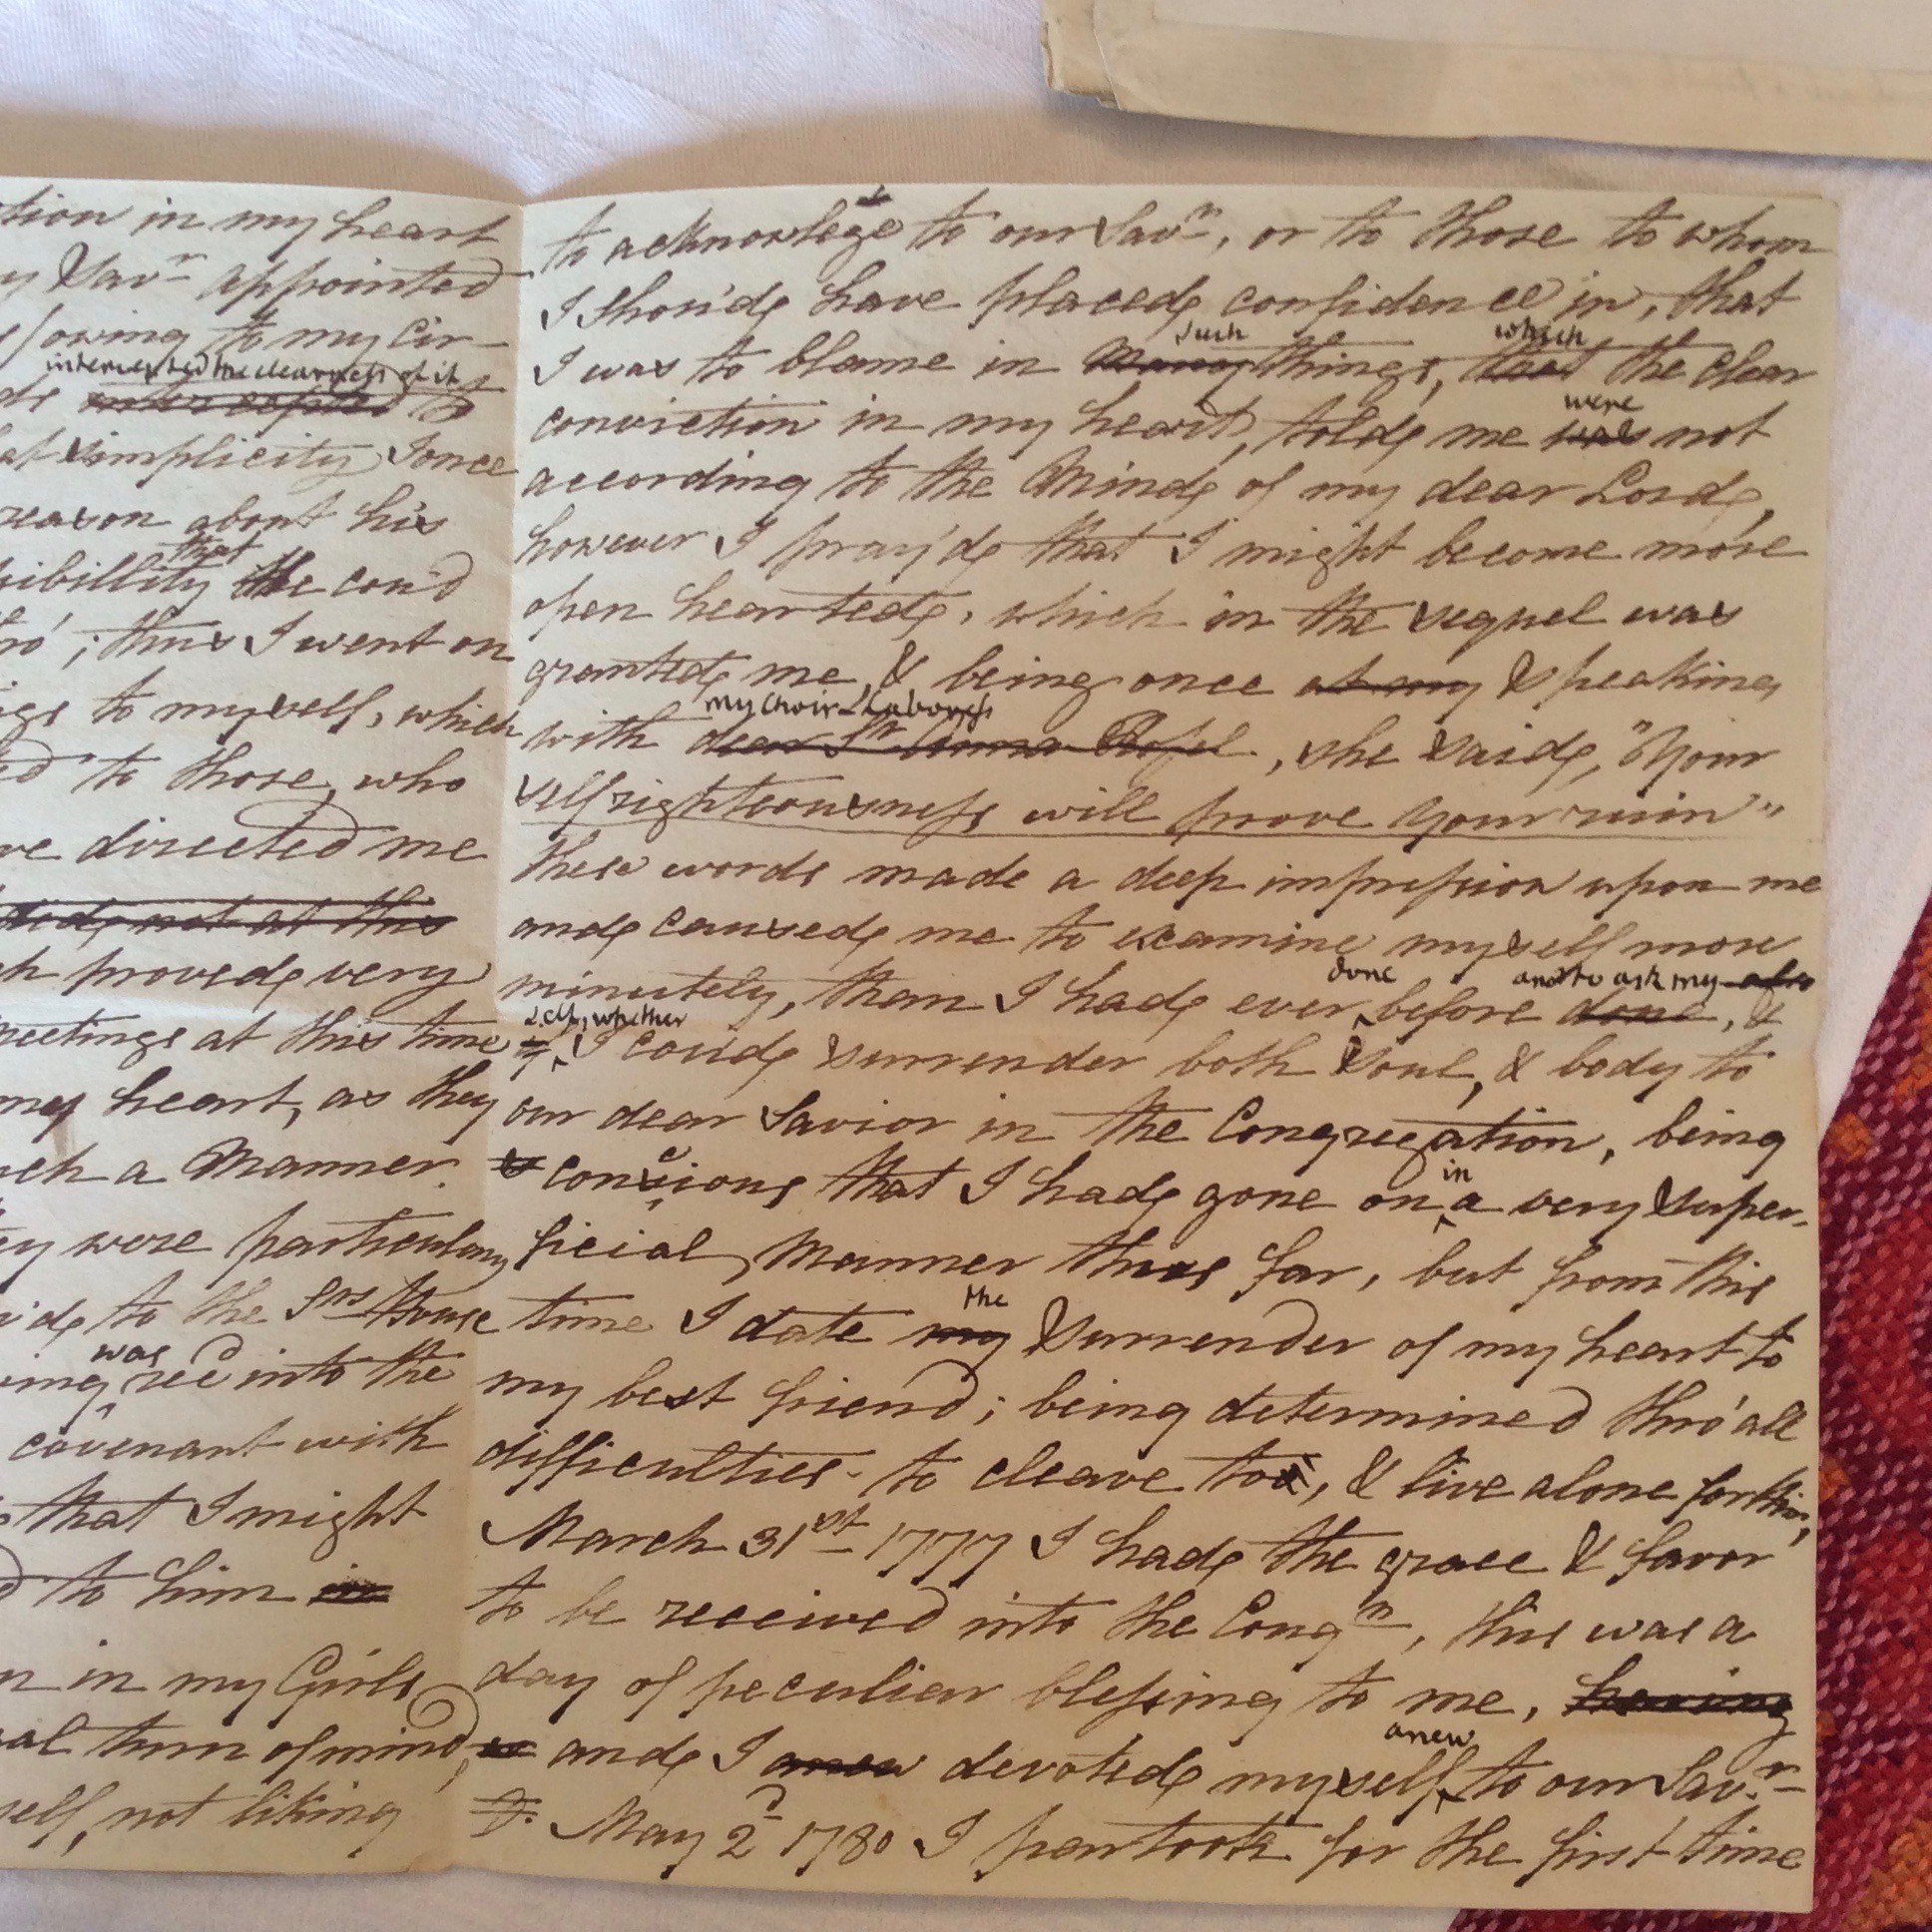 tion in my heart
y Savr appointed
owing to my Cir-
intercepted the clearness of it
ds intercepted to
at simplicity I once
reason about his
that
sibillity the cou'd
ro'; thus I went on
igs to myself, which
ed to those, who
ve directed me
did not at this
h proved very
meetings at this time
my heart, as they
uch a Manner.
ey were particulary
i'd to the Srs House
was
ing rec'd into the
covenant with
that I might
d to him in
n in my Girls
al turn of mind,
self, not liking
to acknowlege to our Savr, or to those to whom
I shou'd have placed confidence in, that
such which
I was to blame in Many things, that the clear
were
conviction in my heart, told me was not
according to the Mind of my dear Lord,
however I pray'd that I might become more
open hearted, which in the sequel was
granted me, & being once at my speaking
my Choir-Labouress
with dear Sr Anna Rosel, she said, "Your
selfrighteousness will prove your ruin"
these words made a deep impression upon me
and caused me to examine myself more
done and to ask my also
minutely, than I had ever before done, &
self, whether
if I cou'd surrender both Soul, & body to
our dear Savior in the Congregation, being
c in
s consious that I had gone on a very super-
ficial Manner thus far, but from this
the
time I date my Surrender of my heart to
my best friend; being determined thro' all
difficulties to cleave to, & live alone for him,
March 31st 1777 I had the grace & favor
to be received into the Congn, this was a
day of peculiar blessing to me, having
anew
and I anew devoted myself to our Savr
I. May 2d 1780 I partook for the first time